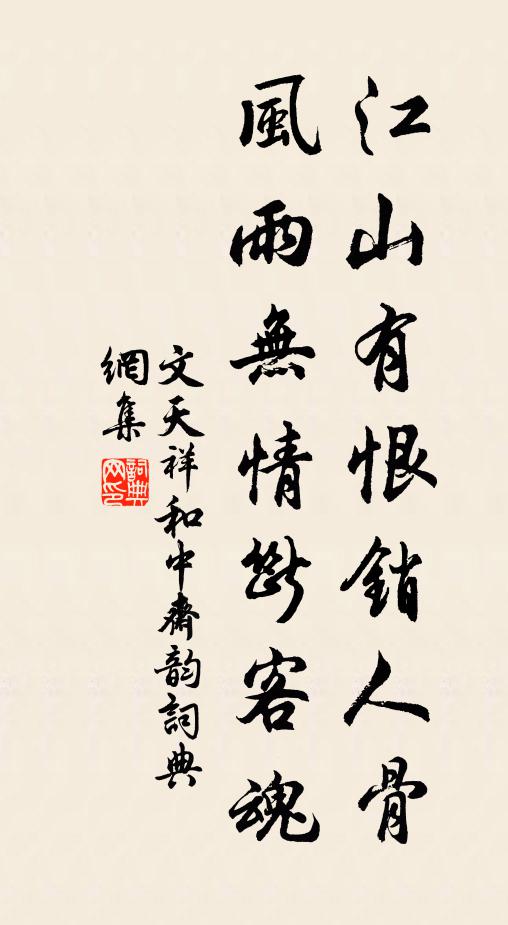 江山有恨銷人骨
風雨無情斷客魂
文天祥和中齋韵詞典
網集
詞典
网印